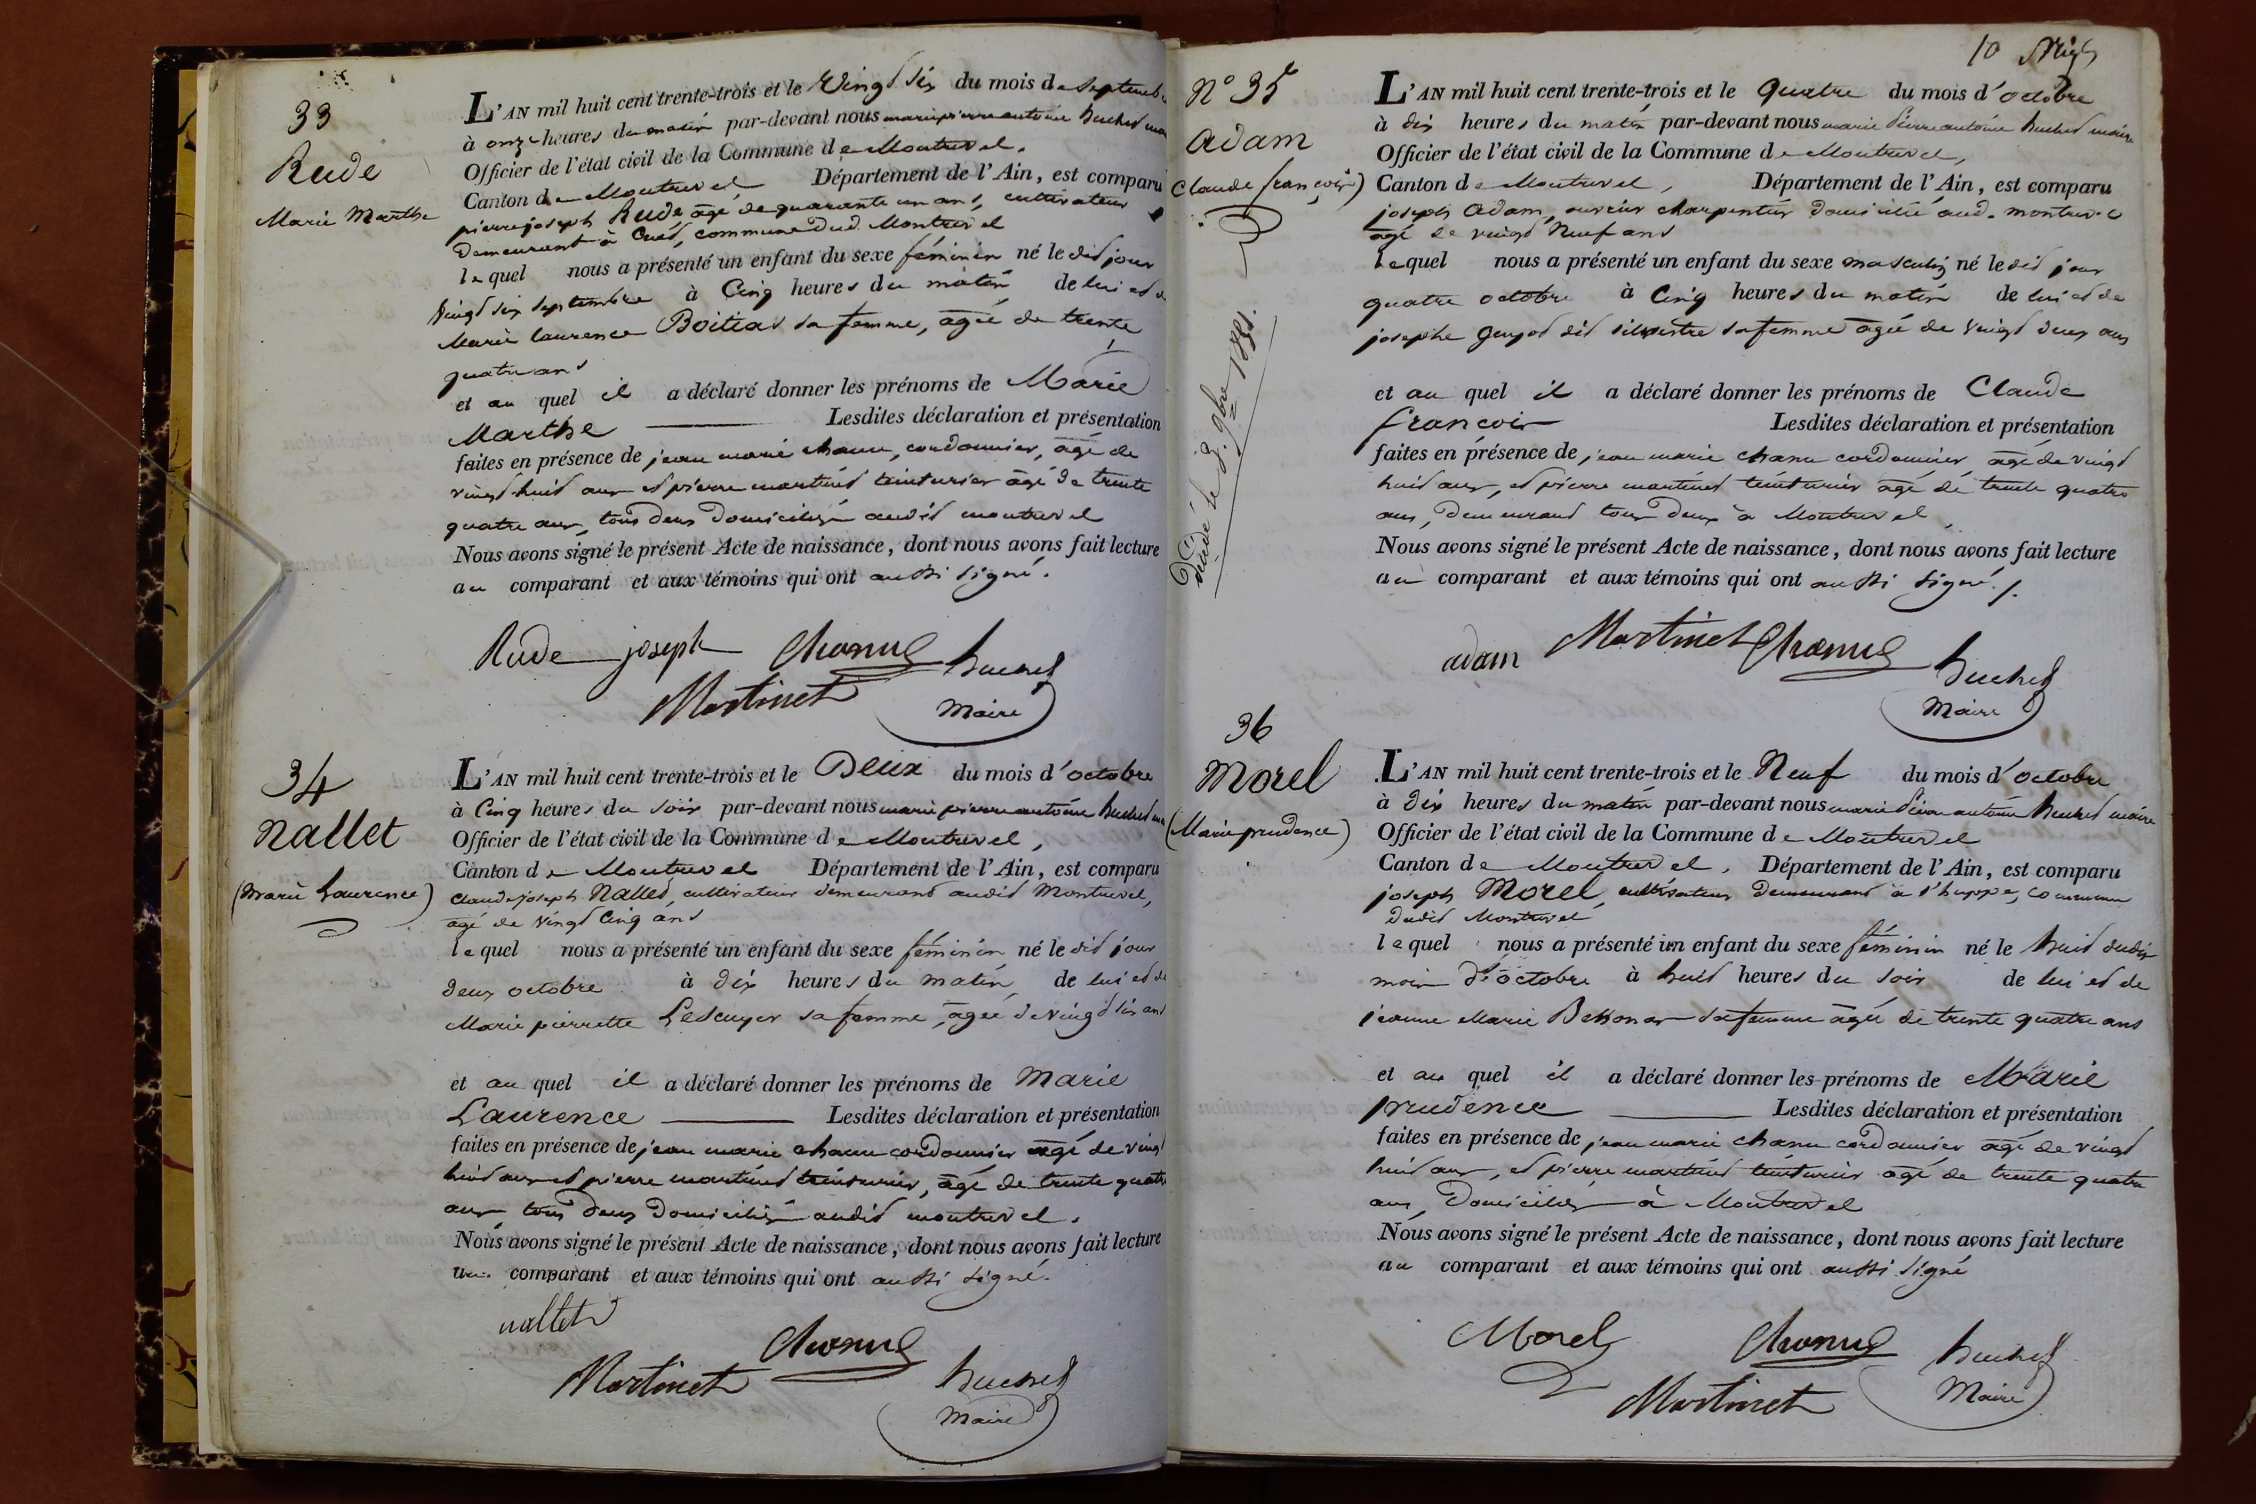 33
Rude
Marie Marthe
L'AN mil huit cent trente-trois et le Vingt six du mois de septembre
à onze heures du matin par-devant nous marie pierre antoine huchet
Officier de l'état civil de la Commune de Montrevel.
Canton de Montrevel Département de l'Ain, est comparu
pierre joseph Rude agé de quarante un ans, cultivateur
demeurant à Cuet, commune dud. Montrevel
lequel nous a présenté un enfant du sexe féminin né le dit jour
vingt six septembre à Cinq heures du matin de lui et de
Marie laurence sa femme, agée de trente
quatre ans
et au quel il a déclaré donner les prénoms de Marie
Marthe Lesdites déclaration et présentation
faites en présence de jean marie chanu, cordonnier, agé de
vingt huit ans et pierre martinet teinturier agé de trente
quatre ans, tous deux domiciliés audit montrevel
Nous avons signé le présent Acte de naissance, dont nous avons fait lecture
au comparant et aux témoins qui ont aussi signé.
Rude joseph Chanu huchet
Martinet Maire
34
Nallet
(Marie Laurence)
L'AN mil huit cent trente-trois et le Deux du mois d'octobre
à Cinq heures du soir par-devant nous marie pierre antoine huchet
Officier de l'état civil de la Commune de Montrevel,
Canton de Montrevel Département de l'Ain, est comparu
claude joseph Nallet, cultivateur demeurant audit Montrevel,
agé de vingt Cinq ans
lequel nous a présenté un enfant du sexe féminin né le dit jour
deux octobre à dix heures du matin de lui et de
Marie pierrette Lescuyer sa femme, agée de vingt six ans
et au quel il a déclaré donner les prénoms de Marie
Laurence Lesdites déclaration et présentation
faites en présence de jean marie chanu cordonnier agé de vingt
huit ans et pierre martinet teinturier, agé de trente quatre
ans tous deux domiciliés audit montrevel.
Nous avons signé le présent Acte de naissance, dont nous avons fait lecture
au comparant et aux témoins qui ont aussi signé.
nallet
Chanu
Martinet huchet
Maire
10
N° 35
Adam
(Claude françois)
Décédé le 3. 9bre 1895.
L'AN mil huit cent trente-trois et le Quatre du mois d'octobre
à dix heures du matin par-devant nous marie pierre antoine huchet maire
Officier de l'état civil de la Commune de Montrevel,
Canton de Montrevel, Département de l'Ain, est comparu
joseph Adam, ouvrier charpentier domicilié aud. montrevel
agé de vingt Neuf ans
lequel nous a présenté un enfant du sexe masculin né le dit jour
quatre octobre à Cinq heures du matin de lui et de
josephe guyot dit silvestre sa femme agée de vingt deux ans
et au quel il a déclaré donner les prénoms de Claude
françois Lesdites déclaration et présentation
faites en présence de jean marie chanu cordonnier, agé de vingt
huit ans, et pierre martinet teinturier agé de trente quatre
ans, demeurant tous deux à Montrevel,
Nous avons signé le présent Acte de naissance, dont nous avons fait lecture
au comparant et aux témoins qui ont aussi signé.
adam Martinet Chanu huchet
Maire
36
Morel
(Marie prudence)
L'AN mil huit cent trente-trois et le Neuf du mois d'octobre
à dix heures du matin par-devant nous marie pierre antoine huchet maire
Officier de l'état civil de la Commune de Montrevel
Canton de Montrevel. Département de l'Ain, est comparu
joseph Morel, cultivateur demeurant à l'huppe, commune
dudit Montrevel
lequel nous a présenté un enfant du sexe féminin né le huit dudit
mois d'octobre à huit heures du soir de lui et de
jeanne Marie sa femme agée de trente quatre ans
et au quel il a déclaré donner les prénoms de Marie
prudence Lesdites déclaration et présentation
faites en présence de jean marie chanu cordonnier agé de vingt
huit ans, et pierre martinet teinturier agé de trente quatre
ans, domiciliés à Montrevel
Nous avons signé le présent Acte de naissance, dont nous avons fait lecture
au comparant et aux témoins qui ont aussi signé
Morel Chanu huchet
Martinet Maire